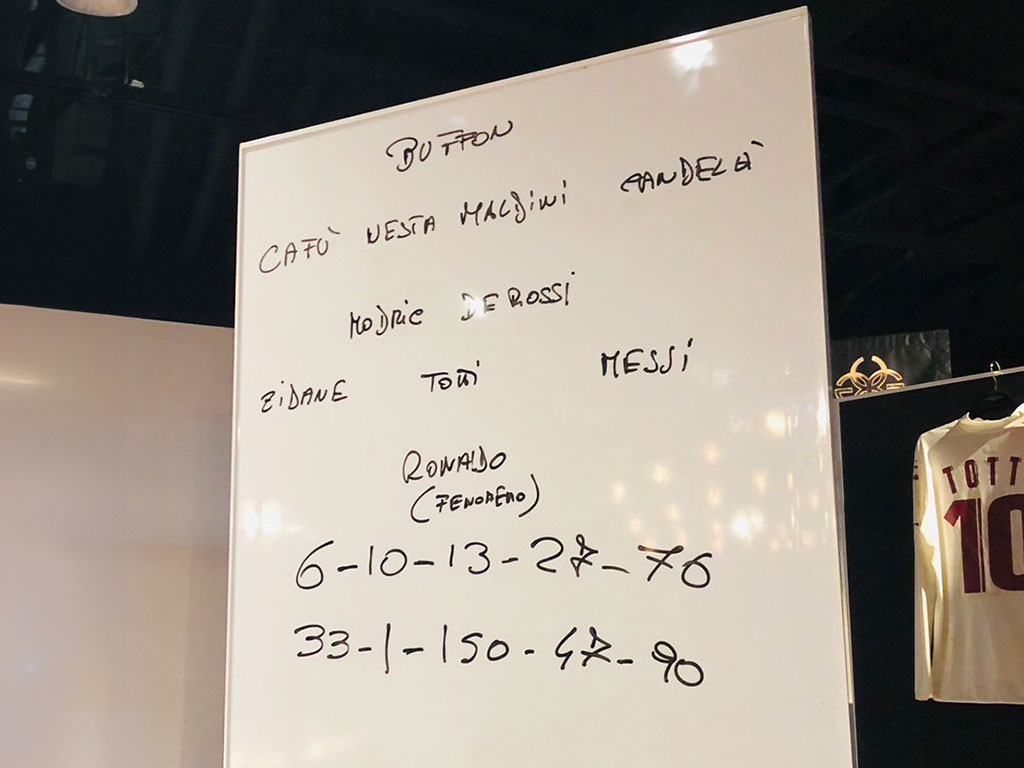 BUFFON
CAFÙ NESTA MALDINI CANDELÀ
MODRIC DE ROSSI
ZIDANE TOTTI MESSI
RONALDO
(FENOMENO)
6-10-13-27-76
33-1-150-47-90
TOTT
10